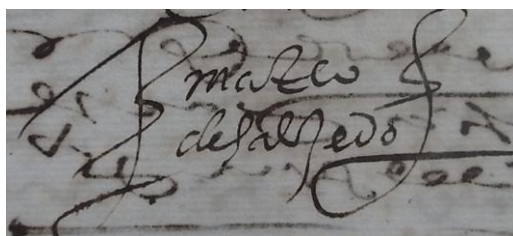 mateo
desalzedo